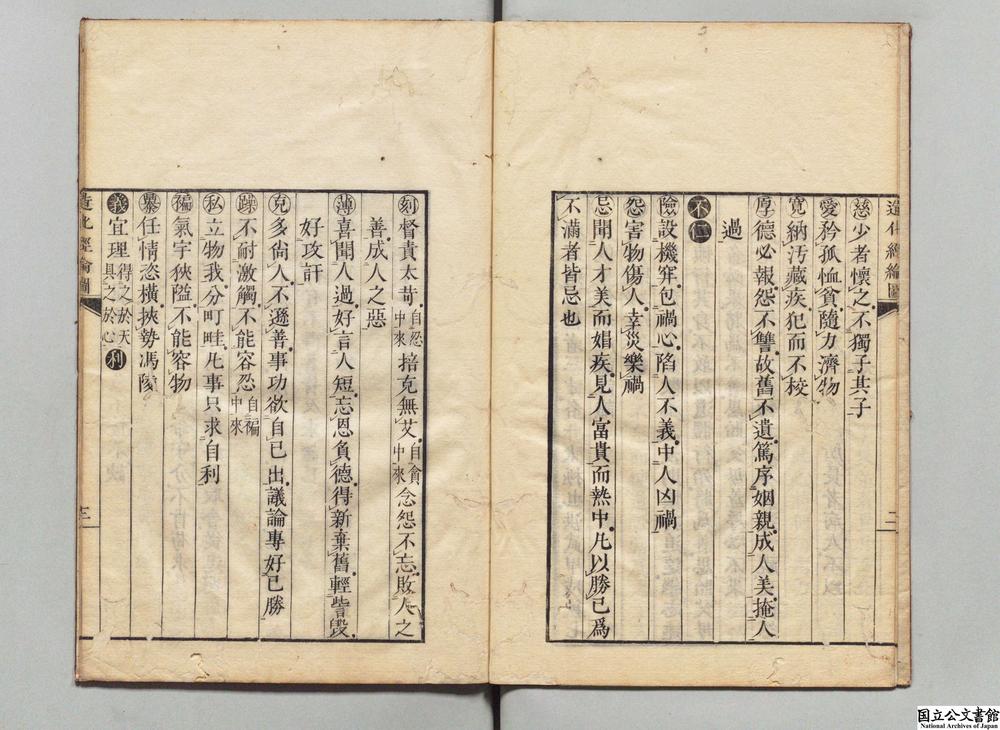 造化經綸圖
慈少者懷之不獨子其子
愛矜孤恤貧隨力濟物
寬納汚藏疾犯而不校
厚德必報怨不讐故舊不遺篤序姻親成人美掩人
過
不仁
險設機穽包禍心陷人不義中人凶禍
怨害物傷人幸災樂禍
忌聞人才美而娼疾見人富貴而熱中凡以勝己爲
不滿者皆忌也
刻督責太苛自忍中來掊克無艾自貪中來念怨不忘敗人之
善成人之惡
薄喜聞人過好言人短忘恩負德得新棄舊輕訾毀
好攻訐
克多尙人不遜善事功欲自己出議論專好己勝
躁不耐激觸不能容忍自褊中來
私立物我分町畦凡事只求自利
褊氣宇狹隘不能容物
暴任情恣橫挾勢馮陵
義宜理得之於天具之於心利
造化經綸圖
三
国立公文書館
National Archives of Japan